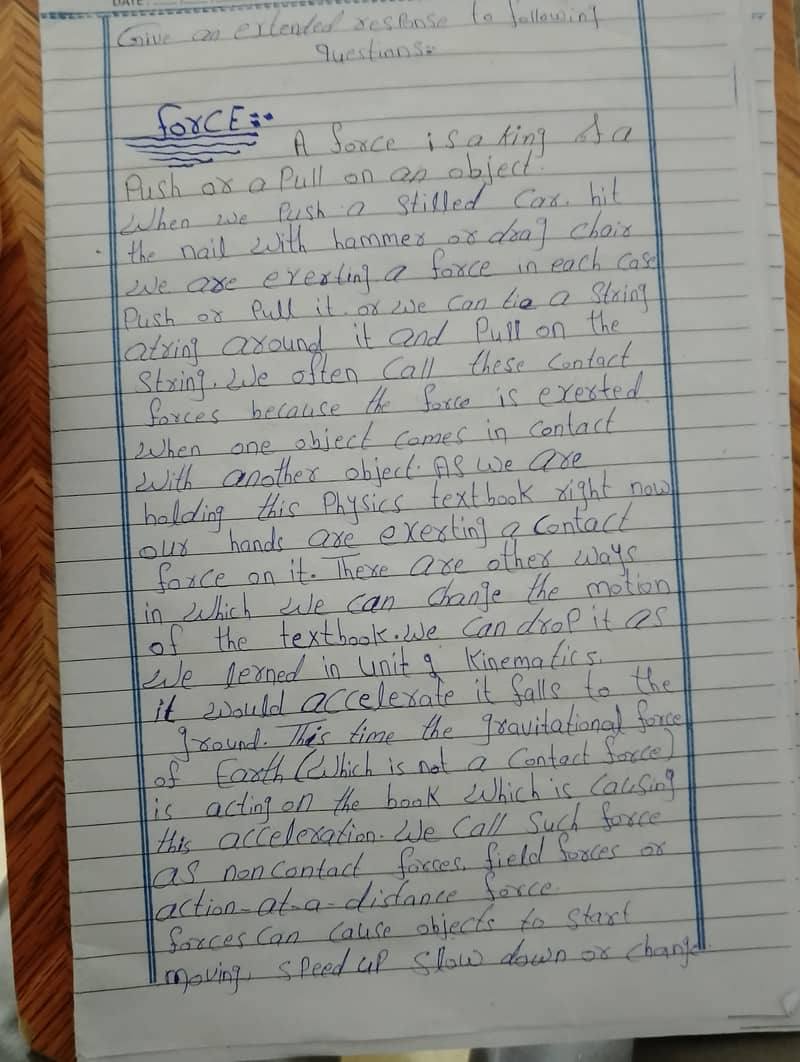 DATE:
Give an extended response to following
questions:
ForCE:
A force is a king of a
Push or a Pull on an object.
When we Push a Stilled Car, hit
the nail with hammer or drag chair
we are exerting a force in each case
Push or Pull it. or we can tie a String
atring around it and Pull on the
String. We often Call these Contact
forces because the force is exerted
When one object comes in Contact
With another object. AS we are
holding this Physics textbook right now
our hands are exerting a Contact
force on it. There are other ways
in which we can Change the motion
of the textbook. we can drop it as
we lerned in Unit 2 Kinematics.
it would accelerate it falls to the
ground. This time the gravitational force
of Earth (Which is not a Contact force)
is acting on the book which is Causing
this acceleration. We Call Such force
as non Contact forces, field forces or
action-at-a-distance force.
forces Can Cause objects to Start
moving, Speed up Slow down or Change